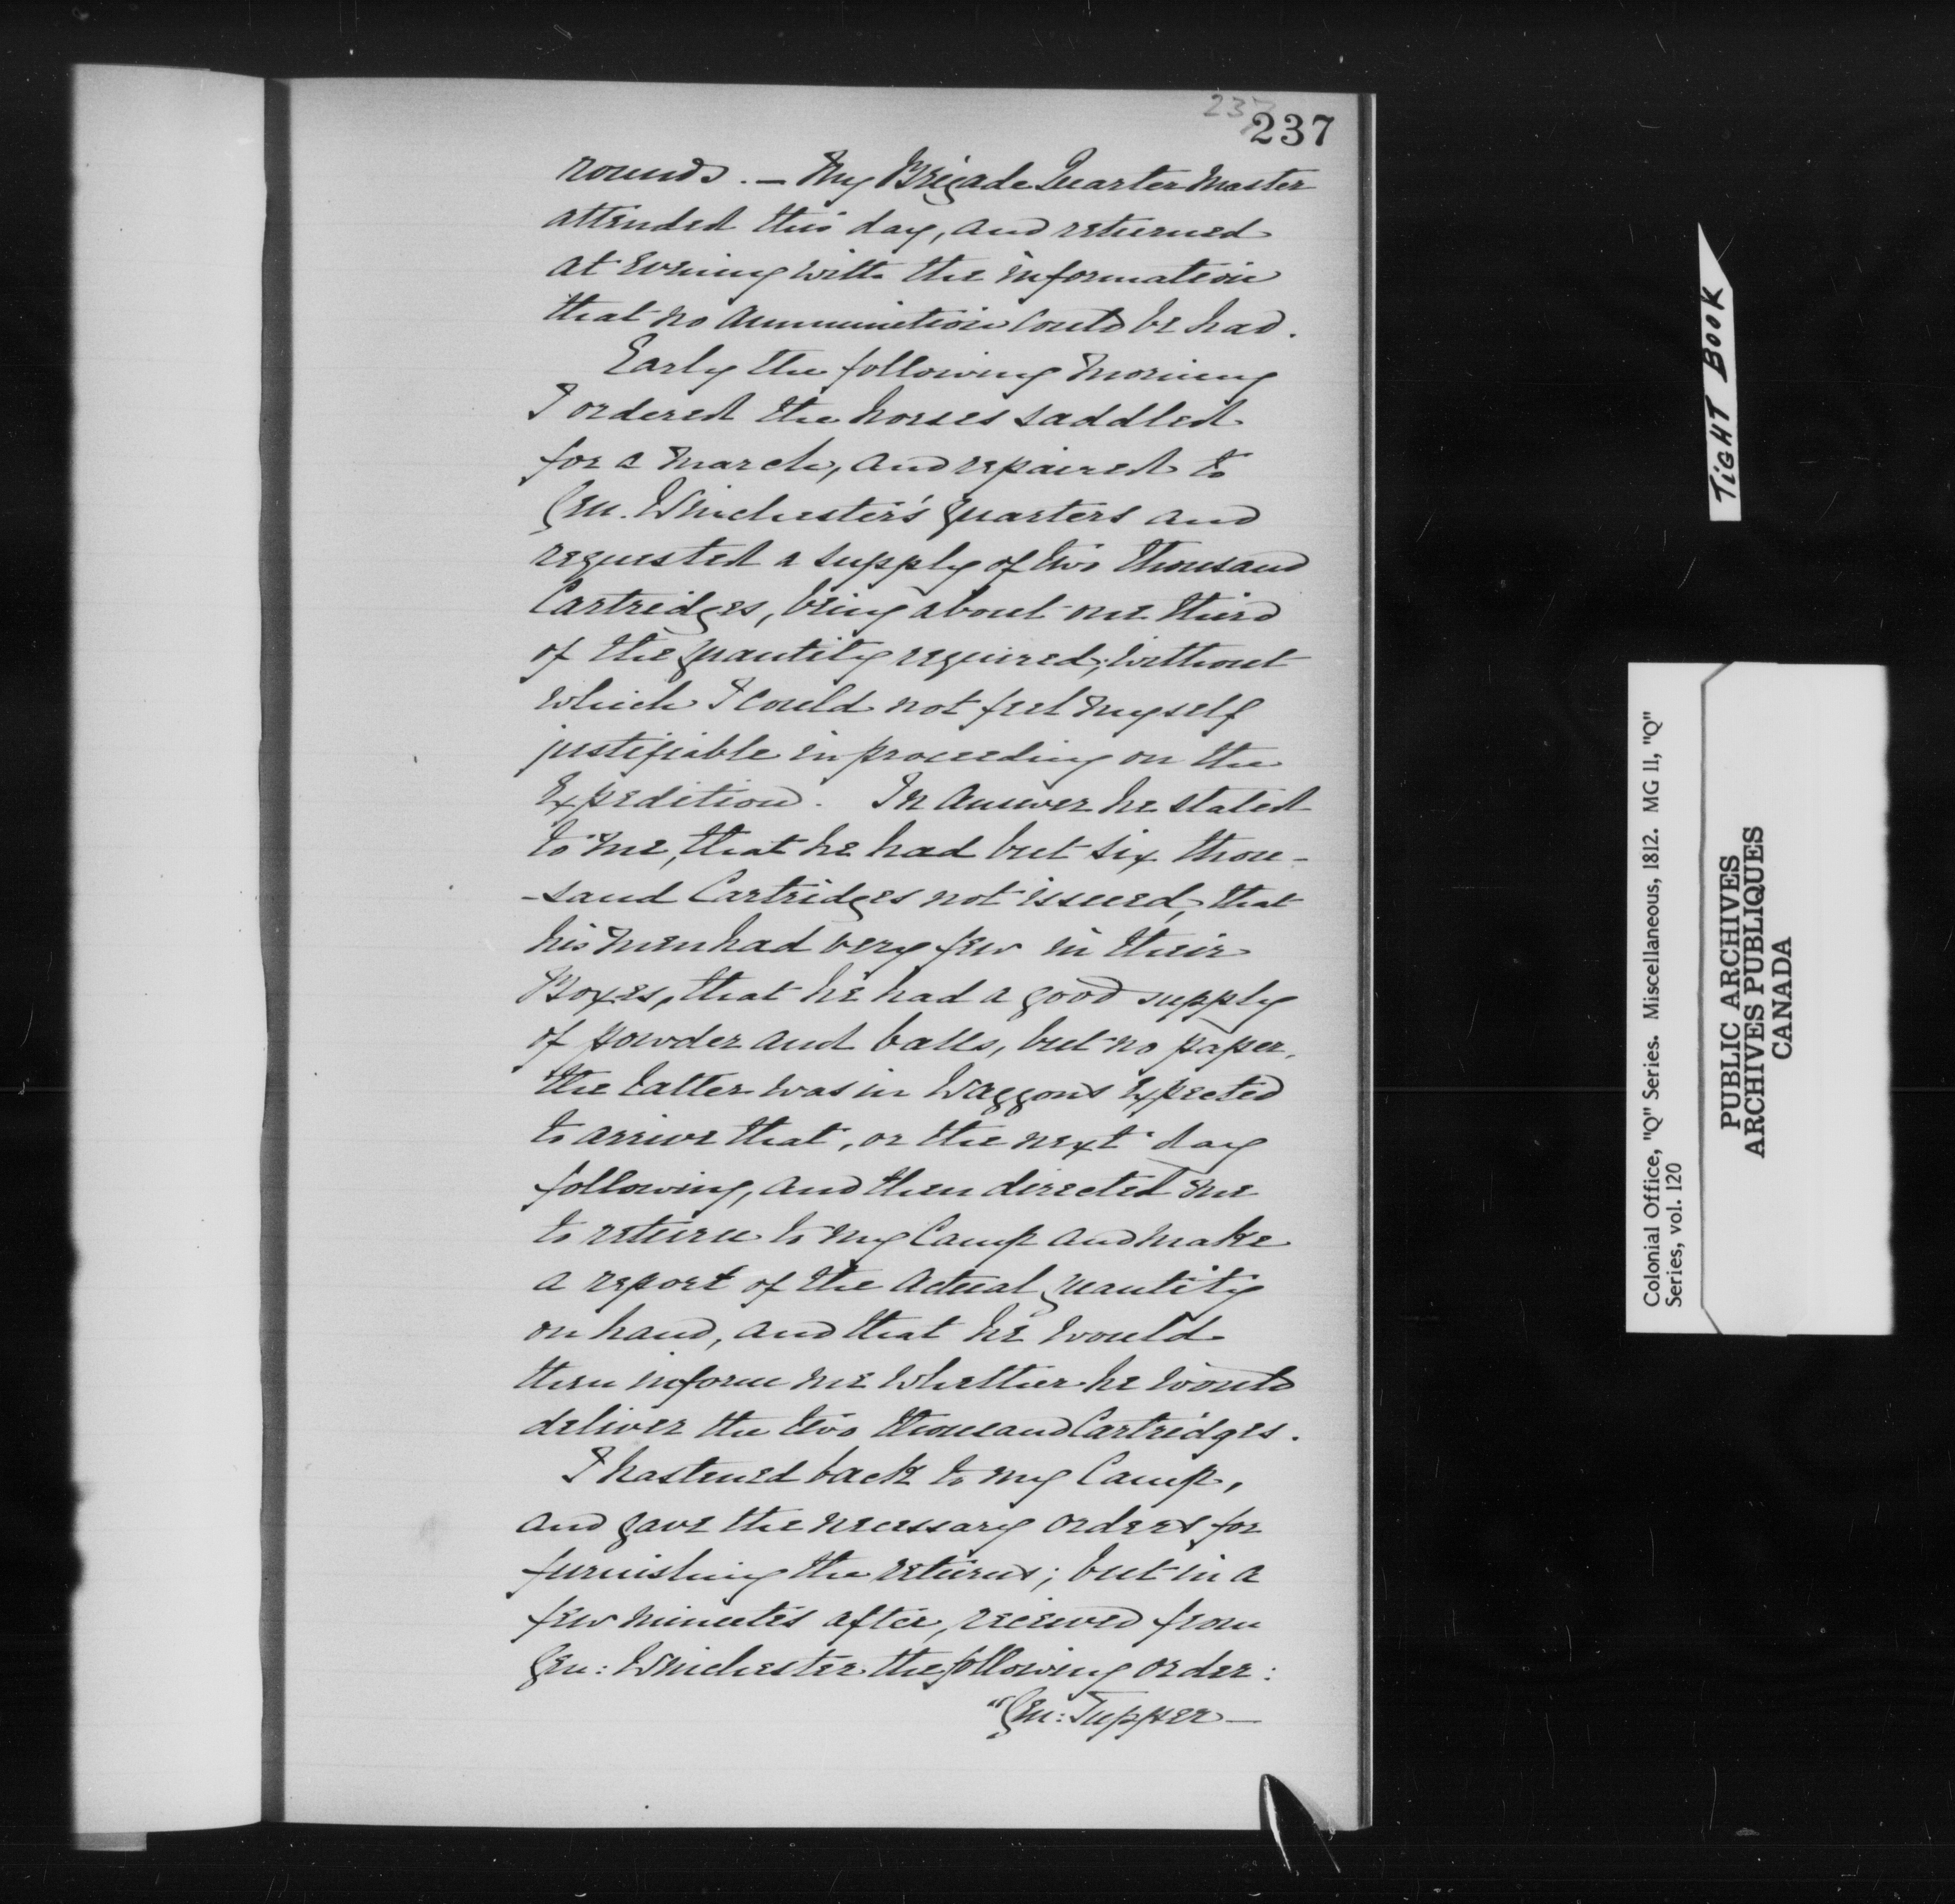 237
237
rounds. — My Brigade Quarter Master
attended this day, and returned
at evening with the information
that no ammunition could be had.
Early the following morning
I ordered the horses saddled
for a march, and repaired to
Gen. Winchester's quarters and
requested a supply of two thousand
Cartridges, being about one third
of the quantity required; without
which I could not feel myself
justifiable in proceeding on the
Expedition. In answer he stated
to me, that he had but six thou-
-sand Cartridges not issued, that
his men had very few in their
Boxes, that he had a good supply
of powder and balls, but no paper,
the latter was in Waggons expected
to arrive that, or the next day
following, and then directed me
to return to my Camp and make
a report of the actual quantity
on hand, and that he would
then inform me whether he would
deliver the two thousand Cartridges.
I hastened back to my Camp,
and gave the necessary orders for
furnishing the returns; but in a
few minutes after, received from
Gen: Winchester the following order:
"Gen: Tupper —
TIGHT BOOK
Colonial Office, "Q" Series. Miscellaneous, 1812. MG 11, "Q"
Series, vol. 120
PUBLIC ARCHIVES
ARCHIVES PUBLIQUES
CANADA